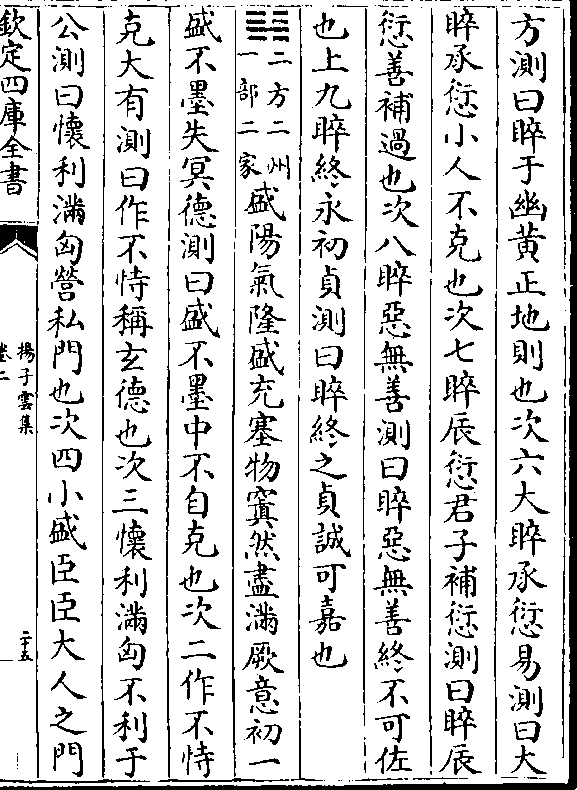 方測曰睟于幽黄正地則也次六大睟承愆易測曰大
睟承愆小人不克也次七睟辰愆君子補愆測曰睟辰
愆善補過也次八睟惡無善測曰睟惡無善終不可佐
也上九睟終永初貞測曰睟終之貞誠可嘉也
二方二州一部二家盛陽氣隆盛充塞物窴然盡滿厥意初一
盛不墨失冥德測曰盛不墨中不自克也次二作不恃
克大有測曰作不恃稱玄德也次三懷利滿匈不利于
公測曰懷利滿匈營私門也次四小盛臣臣大人之門
欽定四庫全書
揚子雲集
卷二
二十五